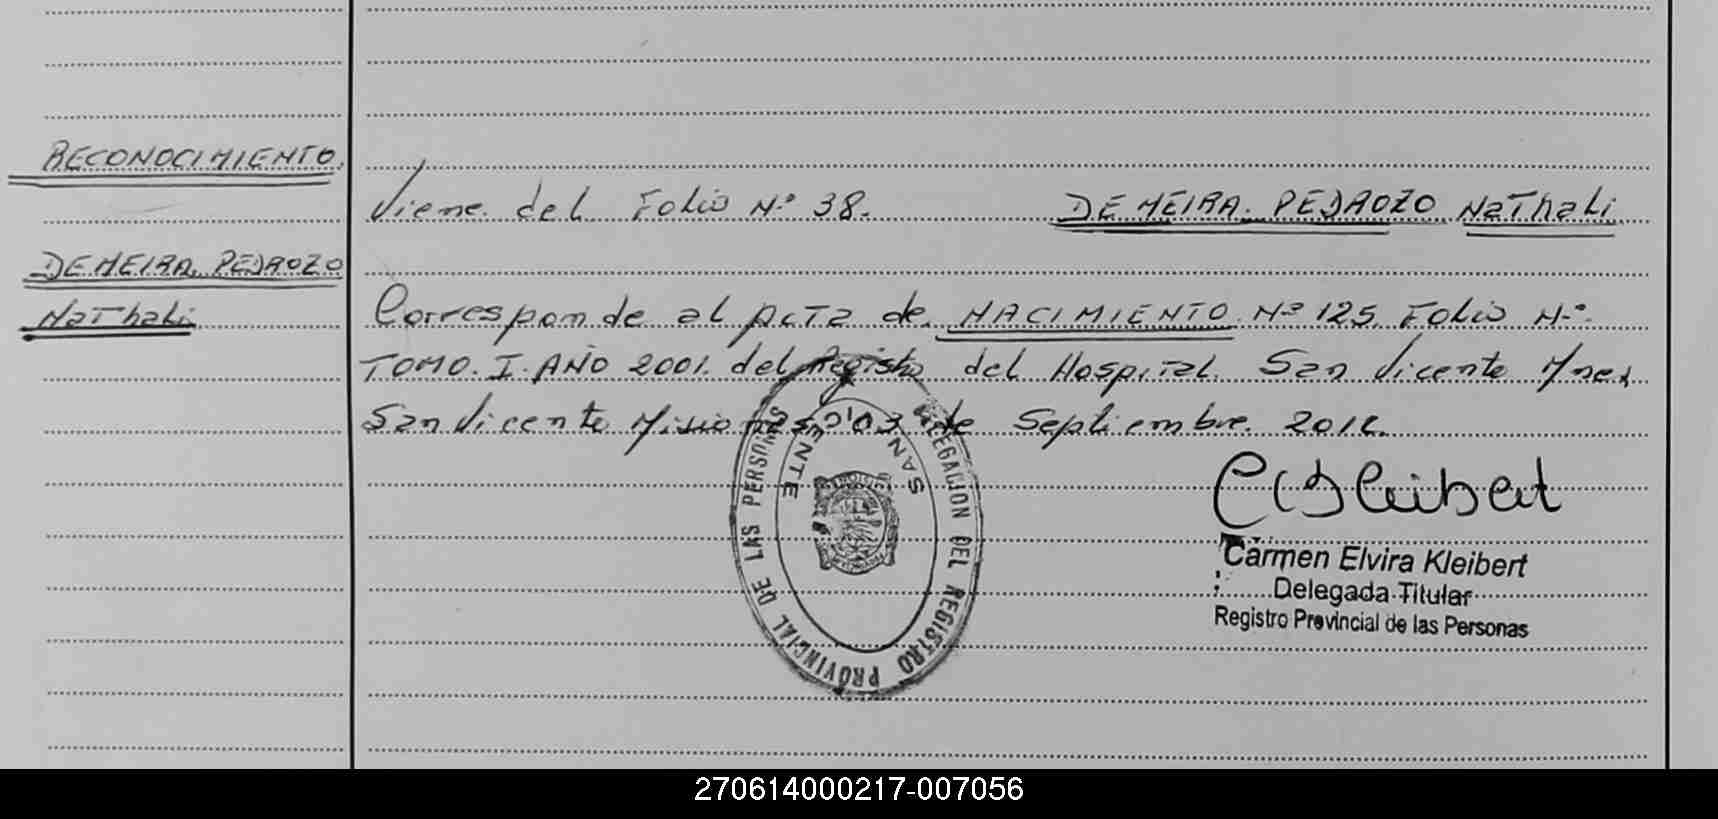 RECONOCIMIENTO.
Viene del Folio Nº 38. DEMEIRA. PEDROZO Nathali
DEMEIRA. PEDROZO
Nathali
Corresponde al Acta de NACIMIENTO Nº 125. Folio Nº
TOMO. I. AÑO 2001. del Registro del Hospital. San Vicente Mnes.
San Vicente Misiones 03 de Septiembre.
DELEGACION DEL REGISTRO PROVINCIAL DE LAS PERSONAS
SAN VICENTE
Carmen Elvira Kleibert
Delegada Titular
Registro Provincial de las Personas
270614000217-007056